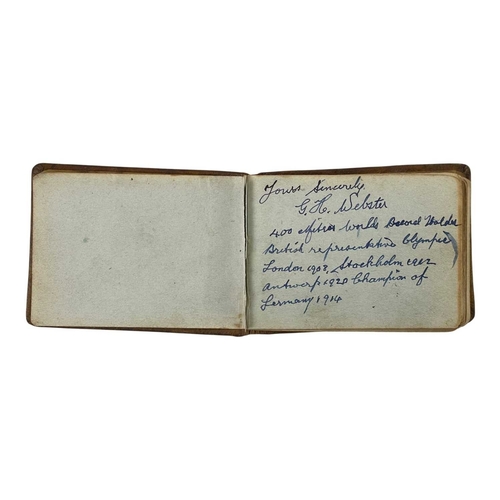 Yours Sincerely
G. H. Webster
400 Metres Worlds Record Holder
British representative Olympic
London 1908, Stockholm 1912
Antwerp 1920 Champion of
Germany 1914